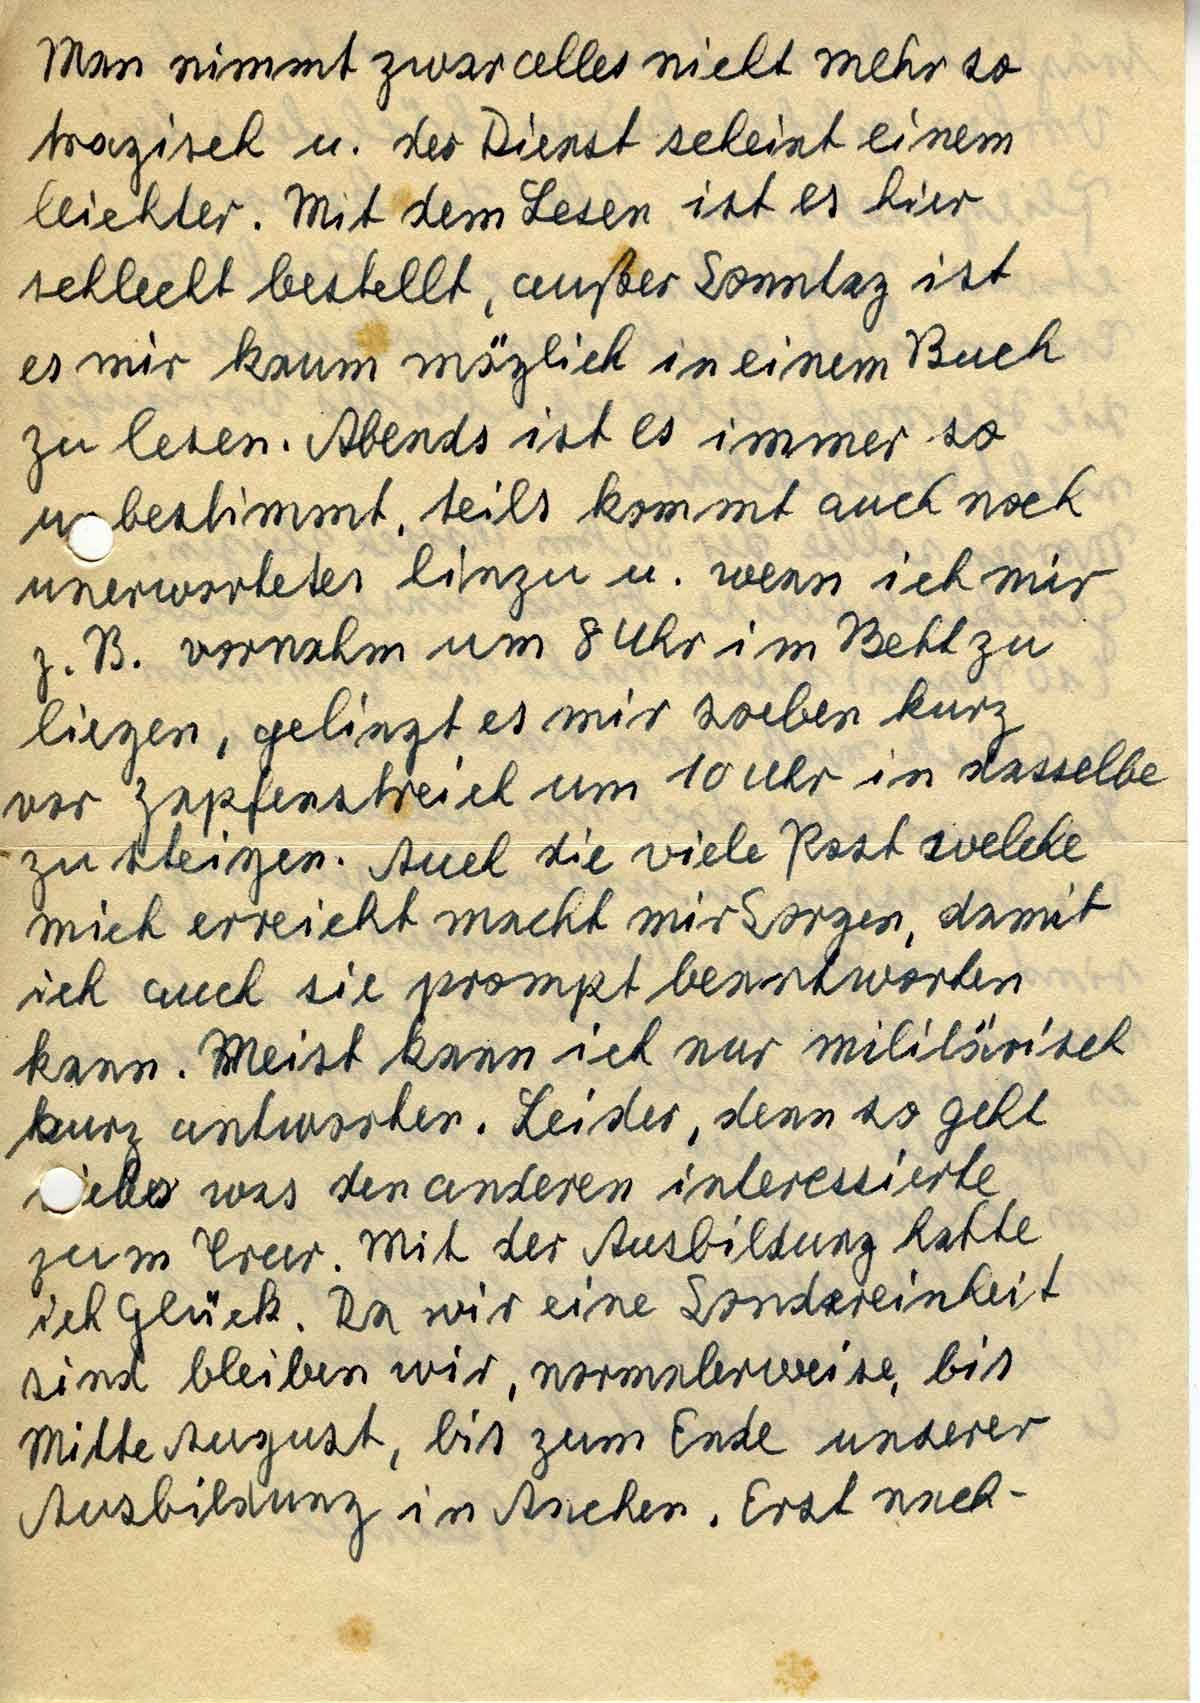 Man nimmt zwar alles nicht mehr so
tragisch u. der Dienst scheint einem
leichter. Mit dem Lesen ist es hier
schlecht bestellt, außer Sonntag ist
es mir kaum möglich in einem Buch
zu lesen. Abends ist es immer so
unbestimmt, teils kommt auch noch
unerwartetes hinzu u. wenn ich mir
z. B. vornahm um 8 Uhr im Bett zu
liegen, gelingt es mir soeben kurz
vor Zapfenstreich um 10 Uhr in dasselbe
zu steigen. Auch die viele Post welche
mich erreicht macht mir Sorgen, damit
ich auch sie prompt beantworten
kann. Meist kann ich nur militärisch
kurz antworten. Leider, denn so geht
vieles was den anderen interessierte
zum . Mit der Ausbildung hatte
ich Glück. Da wir eine Sondereinheit
sind bleiben wir, normalerweise, bis
Mitte August, bis zum Ende unserer
Ausbildung in Aachen. Erst nach-